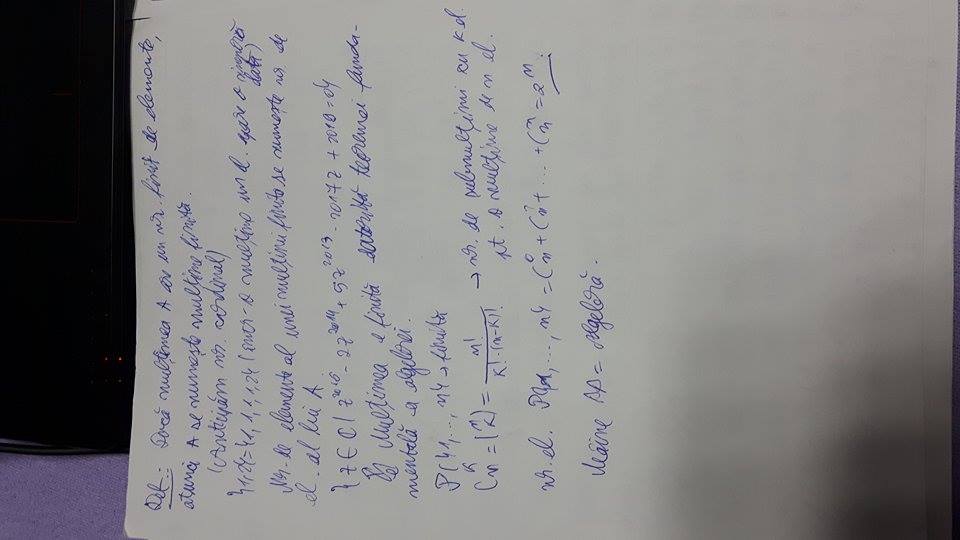 Def.: Dacă mulțimea A are un nr. finit de elemente,
atunci A se numește mulțime finită.
(Anticipăm nr. cardinal)
{1,2}={1,1,1,1,2} (într-o mulțime un el. apare o singură dată)
Nr. de elemente al unei mulțimi finite se numește nr. de
el. al lui A
{z ∈ C | z²⁰¹⁵ - 2z²⁰¹⁴ + 5z²⁰¹³ - 2017z + 2018 = 0}
Mulțimea e finită datorită teoremei funda-
mentală a algebrei.
P({1,..., n}) → finită
Cₙᵏ = (n k) = n! / k!·(n-k)! → nr. de submulțimi cu k el.
pt. o mulțime de n el.
nr. el. P({1,..., n}) = Cₙ⁰ + Cₙ¹ + ... + Cₙⁿ = 2ⁿ.
Mâine = algebră.